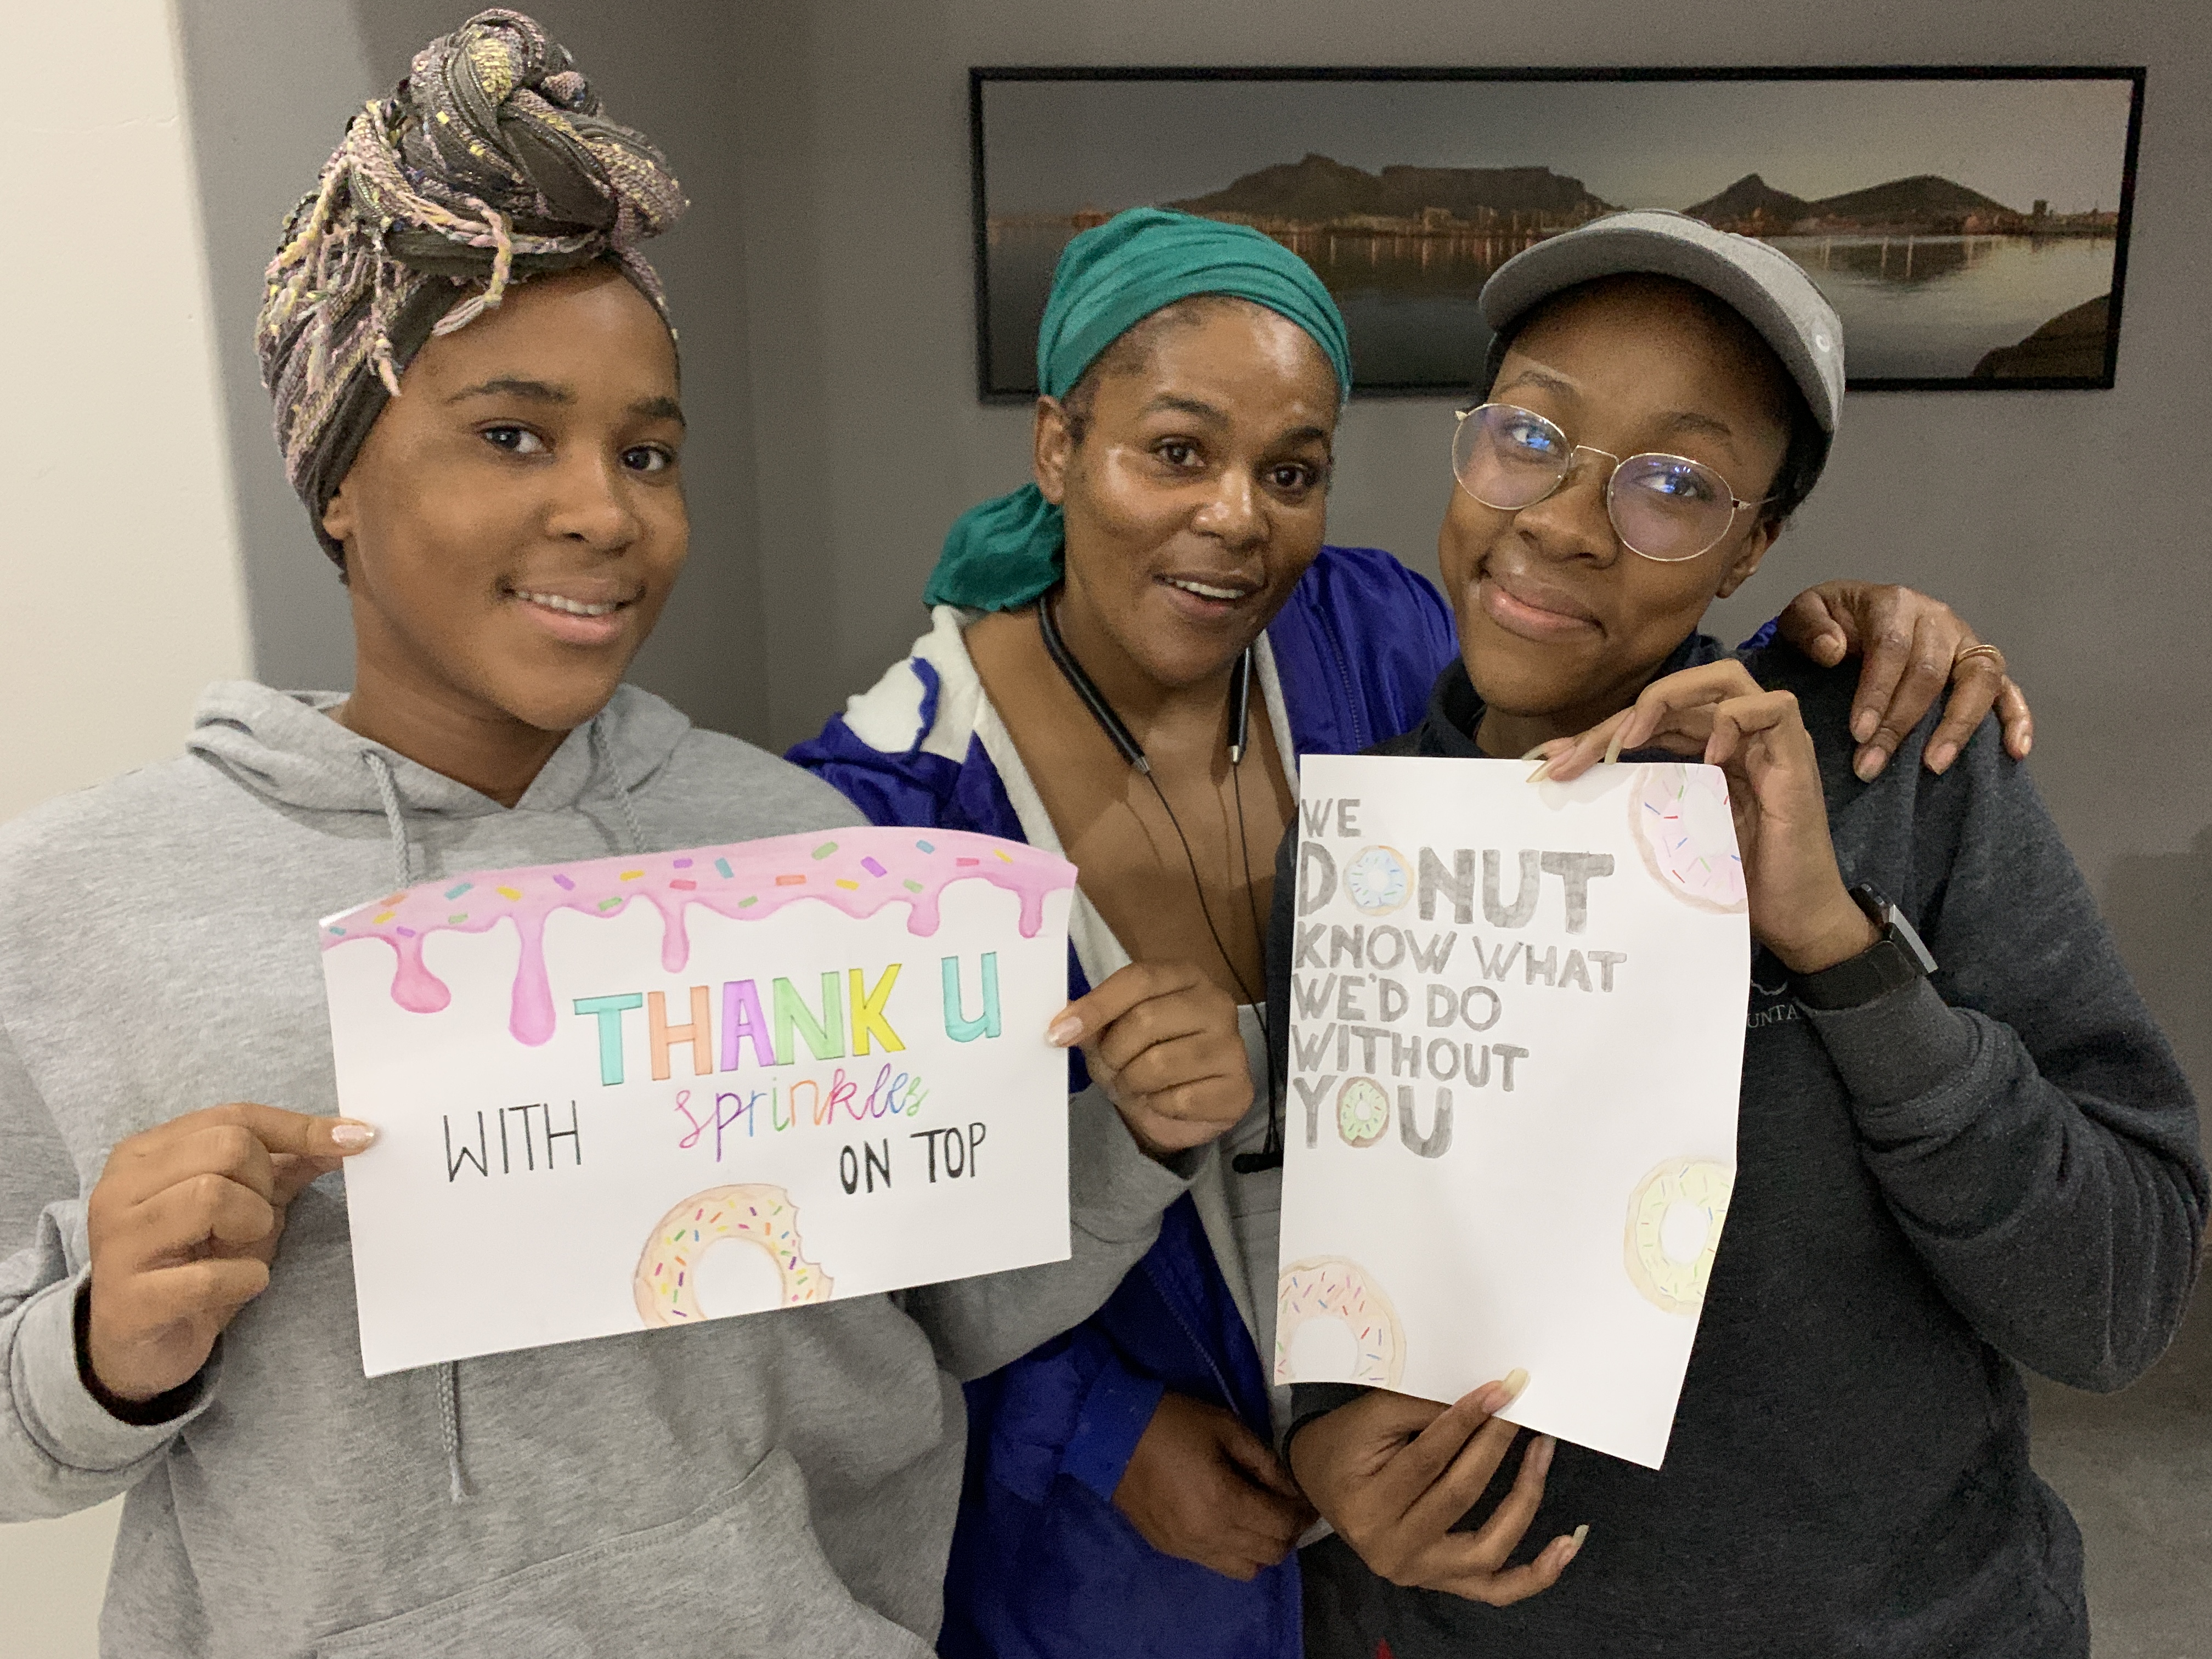 THANK U
WITH sprinkles
ON TOP
WE
DONUT
KNOW WHAT
WE'D DO
WITHOUT
YOU